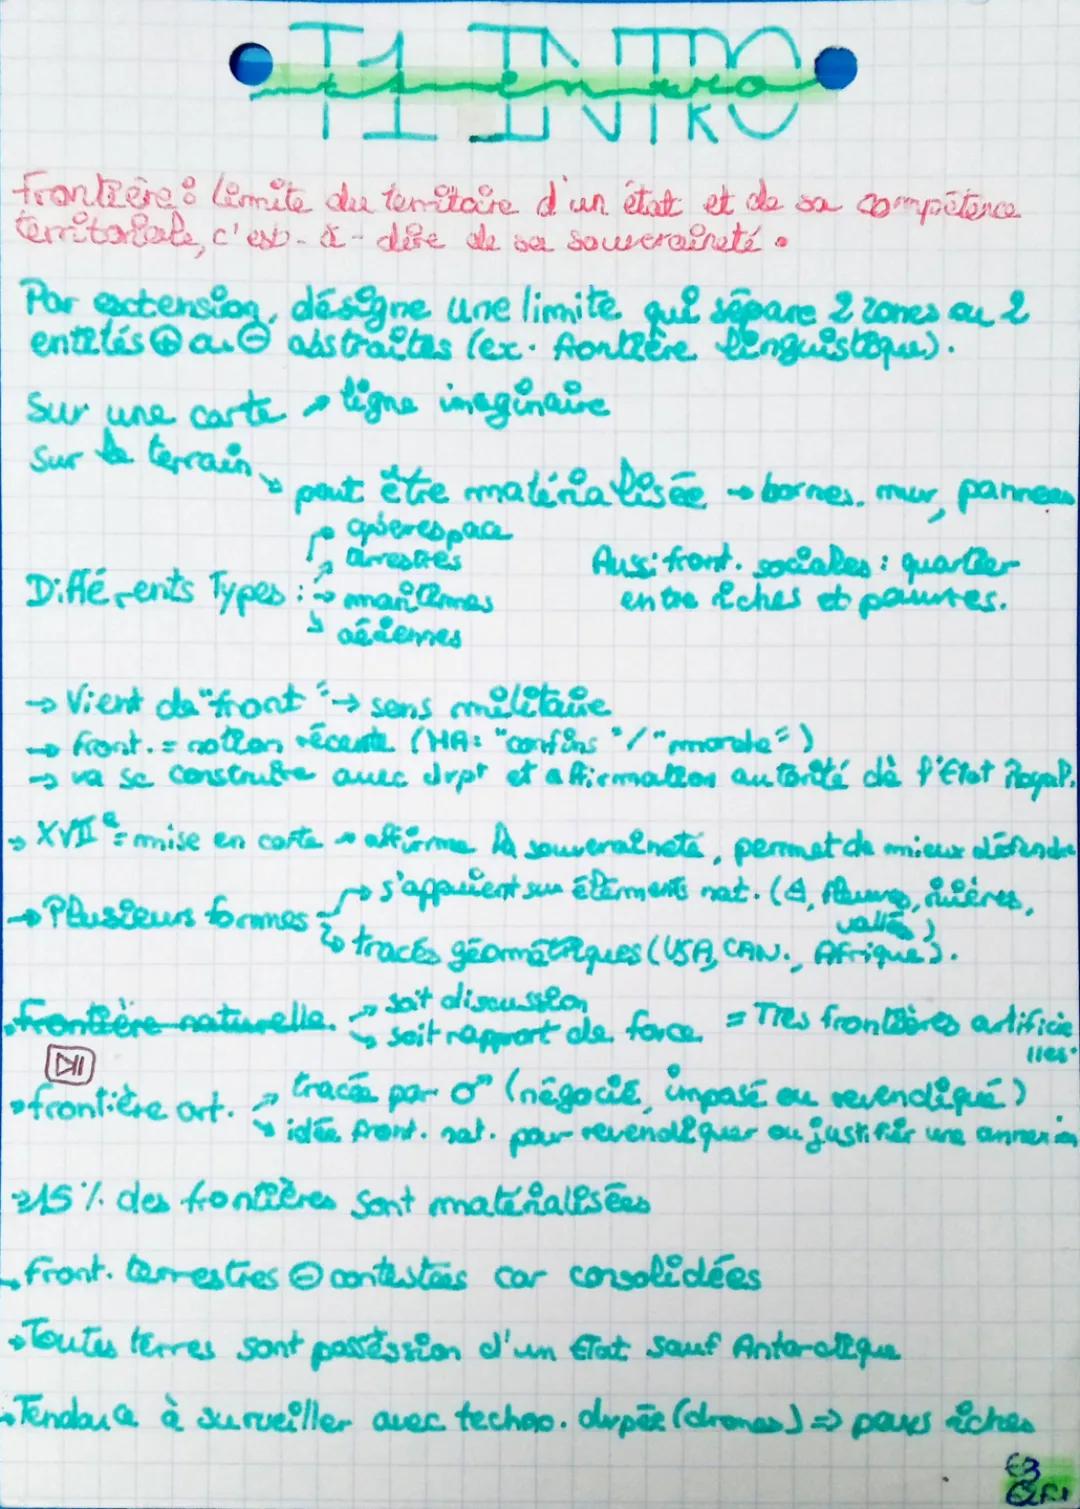 T1 INTRO
t1 intro
Frontière : limite du territoire d'un état et de sa compétence
territoriale, c'est-à-dire de sa souveraineté.
Par extension, désigne une limite qui sépare 2 zones ou 2
entités ⊕ ou ⊖ abstraites (ex. frontière linguistique).
Sur une carte → ligne imaginaire
Sur le terrain
↘ peut être matérialisée → bornes, mur, panneau
Différents Types : → cyberespace
→ terrestres
→ maritimes
→ aériennes
Aussi front. sociales : quartier
entre riches et pauvres.
→ Vient de "front" → sens militaire
→ Front. = notion récente (MA : "confins" / "marche")
→ va se construire avec dvpt et affirmation autorité de l'Etat Royal.
→ XVIIe = mise en carte → affirme la souveraineté, permet de mieux défendre
→ Plusieurs formes → s'appuient sur éléments nat. (Δ, fleuves, rivières,
vallées)
↳ tracés géométriques (USA, CAN., Afrique).
Frontière naturelle. → soit discussion
↳ soit rapport de force. = Ttes frontières artificie
lles.
→ frontière art. → tracée par (négocié, imposé ou revendiqué)
↘ idée front. nat. pour revendiquer ou justifier une annexion
→ 15 % des frontières sont matérialisées
→ Front. terrestres ⊖ contestées car consolidées
→ Toutes terres sont possession d'un Etat sauf Antarctique
→ Tendance à surveiller avec techno. dvpée (drones) ⇒ pays riches